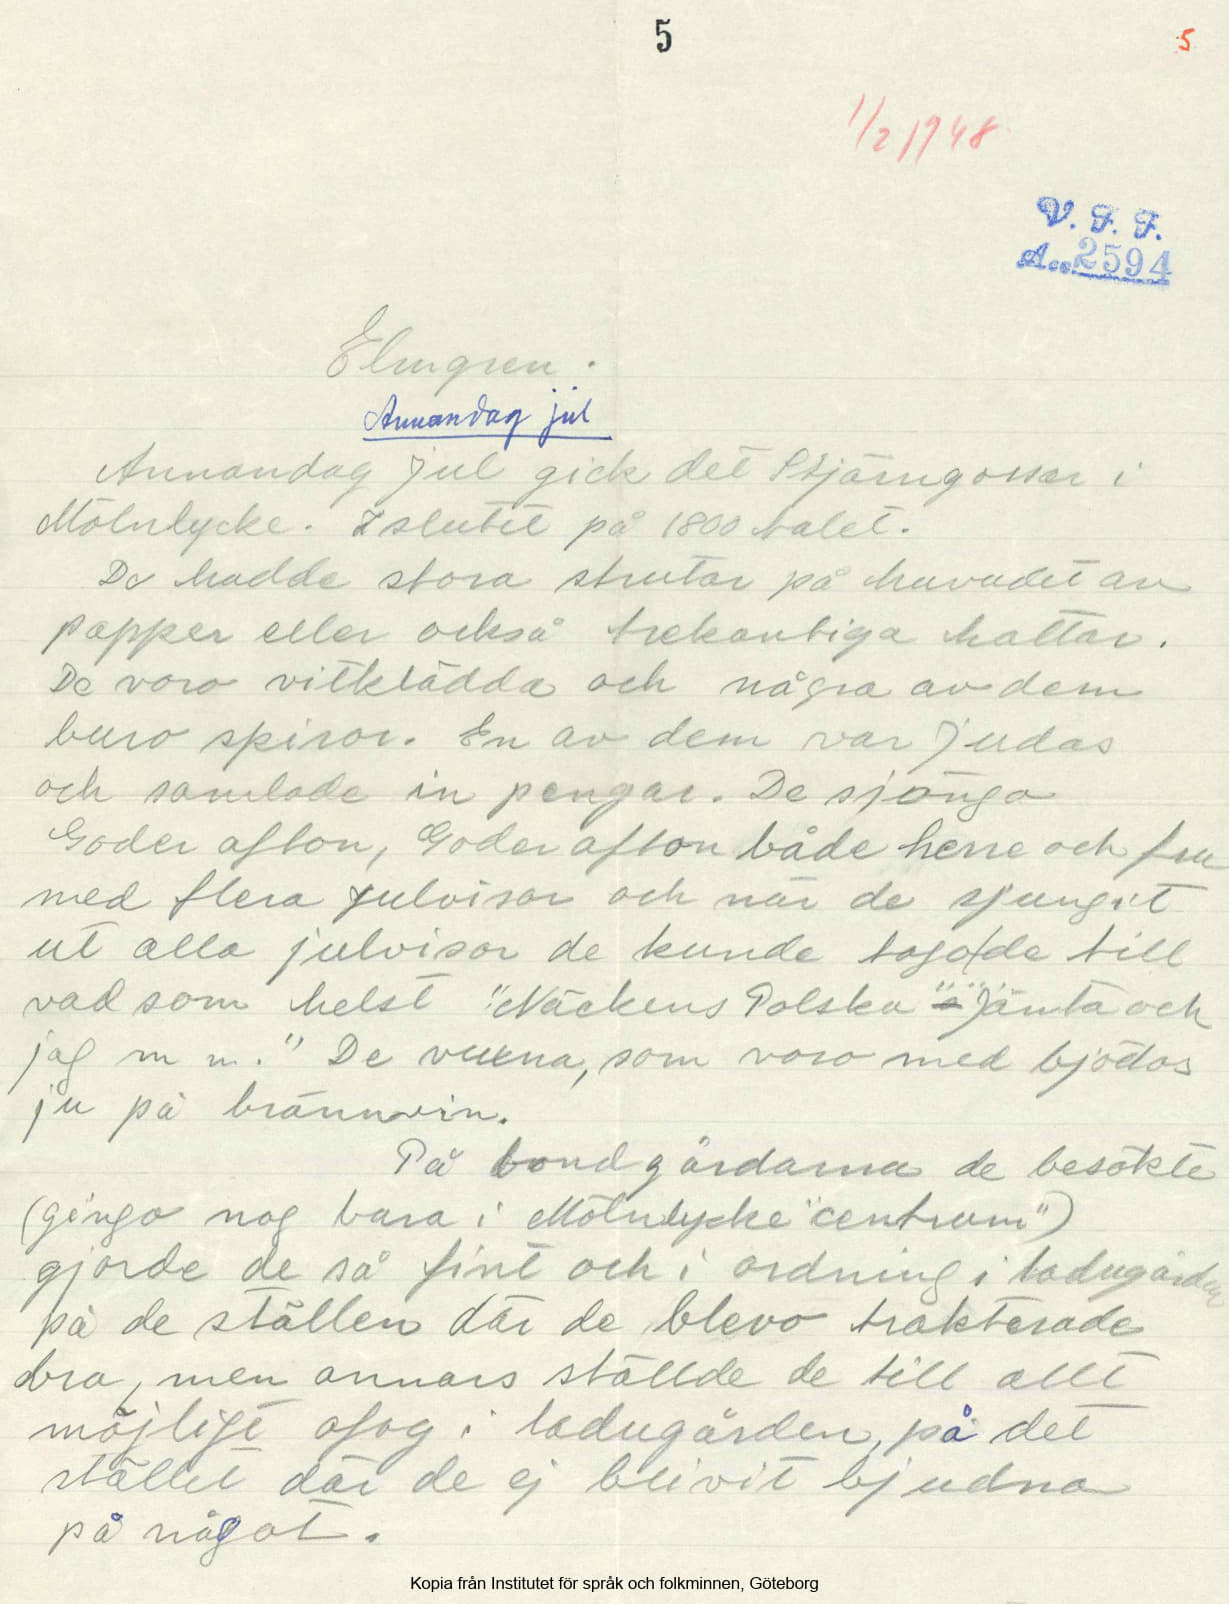 5
5
1/2 1948
V. F. F.
Acc 2594
Elmgren.
Annandag jul
Annandag jul gick det Stjärngossar i
Mölnlycke. I slutet på 1800 talet.
De hadde stora strutar på huvudet av
papper eller också trekantiga hattar.
De voro vitklädda och några av dem
buro spiror. En av dem var Judas
och samlade in pengar. De sjönga
Goder afton, Goder afton både herre och fru
med flera julvisor och när de sjungit
ut alla julvisor de kunde togo de till
vad som helst "Näckens Polska" "Jänta och
jag m m." De vuxna, som voro med bjödos
ju på brännvin.
På bondgårdarna de besökte
(gingo nog bara i Mölnlycke "centrum")
gjorde de så fint och i ordning i ladugården
på de ställen där de blevo trakterade
bra, men annars ställde de till allt
möjligt ofog i ladugården, på det
stället där de ej blivit bjudna
på något.
Kopia från Institutet för språk och folkminnen, Göteborg